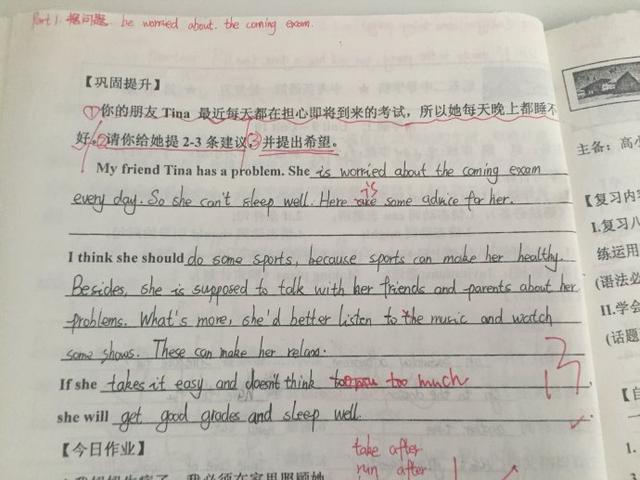 Part 1. 提问题. be worried about. the coming exam.
【巩固提升】
①你的朋友 Tina 最近每天都在担心即将到来的考试，所以她每天晚上都睡不
好。②请你给她提 2-3 条建议，③并提出希望。
My friend Tina has a problem. She is worried about the coming exam
every day. So she can't sleep well. Here are is some advice for her.
I think she should do some sports, because sports can make her healthy.
Besides, she is supposed to talk with her friends and parents about her
problems. What's more, she'd better listen to the music and watch
some shows. These can make her relax.
If she takes it easy and doesn't think too much
she will get good grades and sleep well.
【今日作业】
take after
run after
主备：高
【复习内
I.复习八
练运用
(语法必
II.学会
(话题
【自
1.